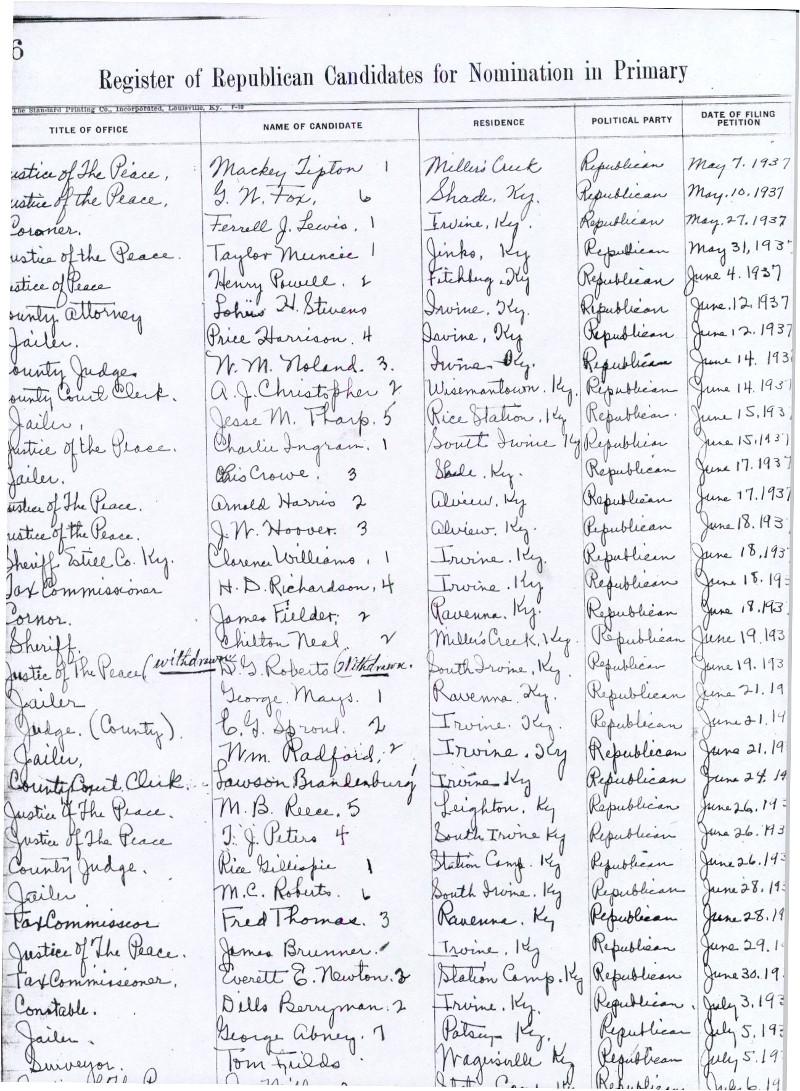 6
Register of Republican Candidates for Nomination in Primary
The Standard Printing Co., Incorporated, Louisville, Ky.
TITLE OF OFFICE NAME OF CANDIDATE RESIDENCE POLITICAL PARTY DATE OF FILING PETITION
ustice of The Peace, Mackey Tipton 1 Miller's Creek Republican May 7. 1937
ustice of the Peace, G. W. Fox, 6 Shade, Ky. Republican May. 10. 1937
Coroner. Ferrell J. Lewis. 1 Irvine, Ky. Republican May. 27. 1937
ustice of the Peace. Taylor Muncie 1 Jinks, Ky Republican May 31, 193
ustice of Peace Henry Powell. 2 Fitchburg, Ky Republican June 4. 1937
ounty Attorney H. Stevens Irvine, Ky. Republican June. 12. 1937
Jailer. Price Harrison. 4 Irvine, Ky Republican June 12. 1937
ounty Judge W. M. Noland. 3. Irvine Ky. Republican June 14. 193
ounty Court Clerk. A. J. Christopher 2 Wisemantown. Ky. Republican June 14. 193
Jailer, Jesse M. Tharp. 5 Rice Station, Ky Republican. June 15, 193
ustice of the Peace. Charlie Ingram. 1 South Irvine Ky Republican June 15, 1937
Jailer. Crowe. 3 Shade. Ky. Republican June 17. 1937
ustice of The Peace. Arnold Harris 2 Alview. Ky Republican June 17. 1937
ustice of the Peace. J. W. Hoover. 3 Alview. Ky. Republican June 18. 193
Sheriff Estill Co. Ky. Clarence Williams, 1 Irvine. Ky Republican June 18. 193
Tax Commissioner H. D. Richardson, 4 Irvine. Ky Republican June 18. 19
Cornor. James Fielder, 2 Ravenna. Ky. Republican June 18. 193
Sheriff. Chilton Neal. 2 Miller's Creek, Ky. Republican June 19. 193
Justice of The Peace (withdrawn D. G. Roberts (Withdrawn. South Irvine, Ky. Republican June 19. 193
Jailer George Mays. 1 Ravenna. Ky. Republican June 21. 19
Judge. (County). C. G. Sproul. 2 Irvine. Ky. Republican June 21, 19
Jailer, Wm. Radford, 2 Irvine, Ky Republican June 21. 19
County Court Clerk. Lawson Brandenburg Irvine Ky Republican June 24. 19
Justice of The Peace. M. B. Reece. 5 Leighton. Ky Republican June 26. 19
Justice of The Peace T. J. Peters 4 South Irvine Ky Republican June 26. 193
County Judge. Rice Gillispie 1 Station Camp. Ky Republican June 26. 19
Jailer M. C. Roberts. 6 South Irvine. Ky Republican June 28. 19
Tax Commisseor Fred Thomas. 3 Ravenna. Ky Republican June 28. 19
Justice of The Peace. James Brunner. Irvine. Ky Republican June 29. 1
Tax Commisseoner, Everett E. Newton. 2 Station Camp. Ky Republican June 30. 19
Constable. Dills Berryman. 2 Irvine. Ky. Republican. July 3. 193
Jailer. George Abney. 7 Patsey Ky. Republican July 5. 19
Surveyor. Tom Fields Wagersville Ky Republican July 5. 19